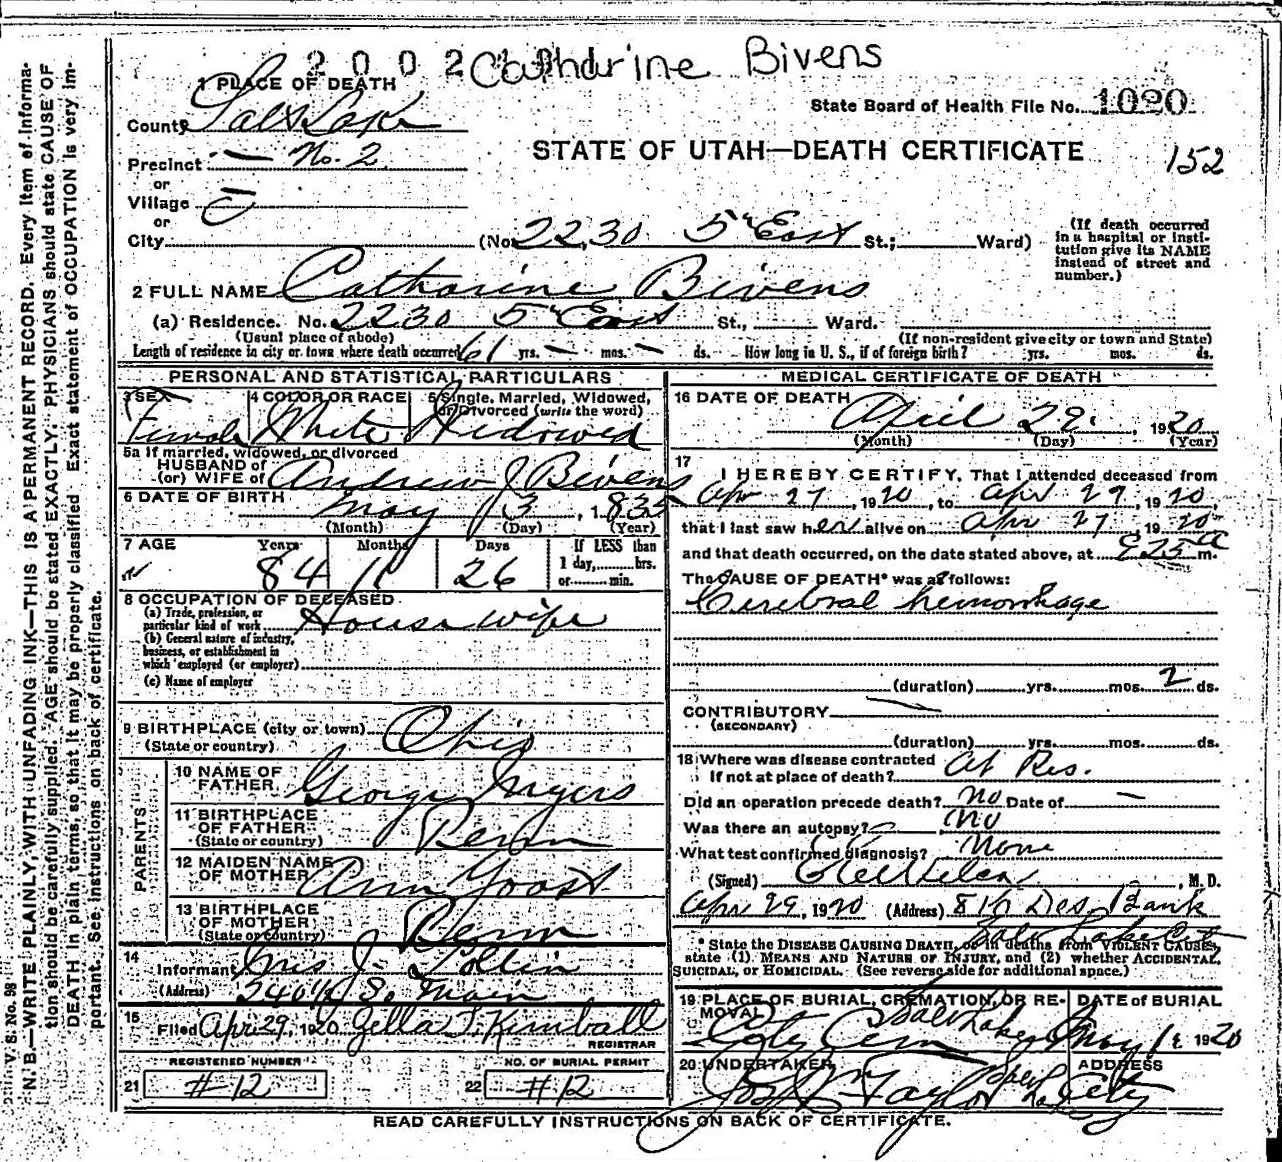 2002 Catharine Bivens
1 PLACE OF DEATH
State Board of Health File No. 1020
County Salt Lake
STATE OF UTAH—DEATH CERTIFICATE 152
Precinct No. 2
or
Village
or
City (No. 2230 5" East St.; Ward)
(If death occurred in a hospital or institution give its NAME instead of street and number.)
2 FULL NAME Catharine Bivens
(a) Residence. No. 2230 5" East St., Ward.
(Usual place of abode) (If non-resident give city or town and State)
Length of residence in city or town where death occurred 61 yrs. — mos. — ds. How long in U. S., if of foreign birth? yrs. mos. ds.
PERSONAL AND STATISTICAL PARTICULARS
3 SEX Female
4 COLOR OR RACE White
5 Single, Married, Widowed, or Divorced (write the word) Widowed
5a If married, widowed, or divorced
HUSBAND of
(or) WIFE of Andrew J Bivens
6 DATE OF BIRTH May 3, 1835
(Month) (Day) (Year)
7 AGE Years 84 Months 11 Days 26
If LESS than 1 day, hrs. or min.
8 OCCUPATION OF DECEASED
(a) Trade, profession, or particular kind of work Housewife
(b) General nature of industry, business, or establishment in which employed (or employer)
(c) Name of employer
9 BIRTHPLACE (city or town) Ohio
(State or country)
PARENTS
10 NAME OF FATHER George Myers
11 BIRTHPLACE OF FATHER Penn
(State or country)
12 MAIDEN NAME OF MOTHER Ann Yoast
13 BIRTHPLACE OF MOTHER Penn
(State or country)
14 Informant J
(Address) 2401½ So Main
15 Filed Apr 29, 1920 Zella T. Kimball
REGISTRAR
REGISTERED NUMBER
21 #12
NO. OF BURIAL PERMIT
22 #12
MEDICAL CERTIFICATE OF DEATH
16 DATE OF DEATH April 29, 1920
(Month) (Day) (Year)
17 I HEREBY CERTIFY, That I attended deceased from
Apr 27, 1920, to Apr 29, 1920,
that I last saw her alive on Apr 27 1920
and that death occurred, on the date stated above, at 925 a m.
The CAUSE OF DEATH* was as follows:
Cerebral hemorrhage
(duration) yrs. mos. 2 ds.
CONTRIBUTORY
(SECONDARY)
(duration) yrs. mos. ds.
18 Where was disease contracted
If not at place of death? At Res.
Did an operation precede death? No Date of —
Was there an autopsy? No
What test confirmed diagnosis? None
(Signed) , M. D.
Apr 29, 1920 (Address) Bank
Salt Lake City
* State the DISEASE CAUSING DEATH, or in deaths from VIOLENT CAUSES, state (1) MEANS AND NATURE OF INJURY, and (2) whether ACCIDENTAL, SUICIDAL, or HOMICIDAL. (See reverse side for additional space.)
19 PLACE OF BURIAL, CREMATION, OR REMOVAL City Cem Salt Lake
DATE of BURIAL May 1, 1920
20 UNDERTAKER Taylor
ADDRESS Salt Lake City
READ CAREFULLY INSTRUCTIONS ON BACK OF CERTIFICATE.
V. S. No. 98
N. B.—WRITE PLAINLY, WITH UNFADING INK—THIS IS A PERMANENT RECORD. Every item of information should be carefully supplied. AGE should be stated EXACTLY. PHYSICIANS should state CAUSE OF DEATH in plain terms, so that it may be properly classified. Exact statement of OCCUPATION is very important. See instructions on back of certificate.